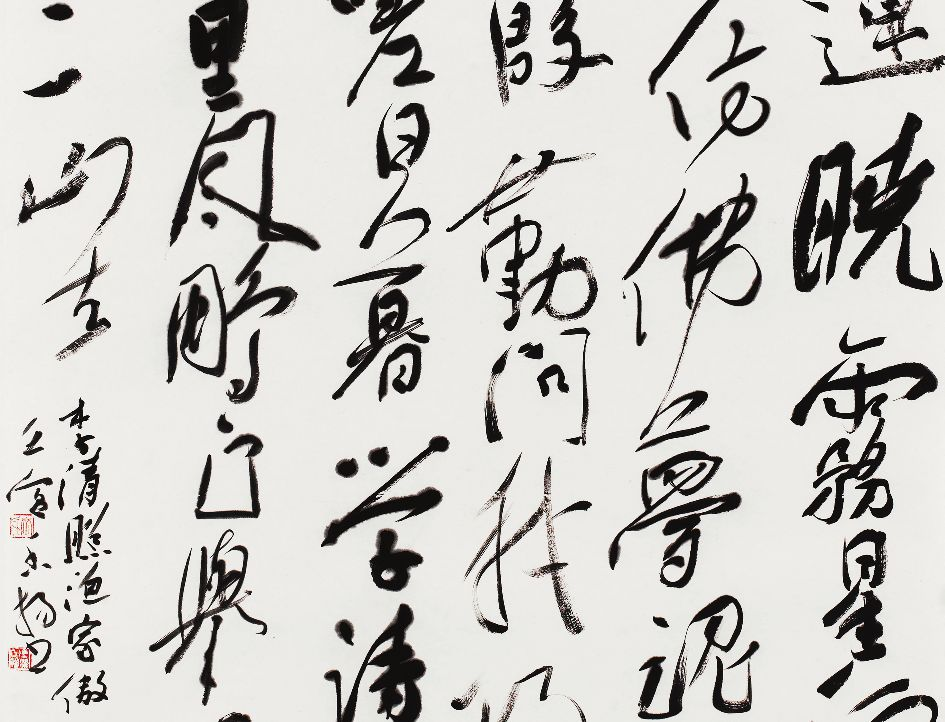 連曉霧星河
仿佛夢魂
殷勤問我
嗟日暮学詩
里風鵬正舉
三山去
李清照漁家傲
壬寅